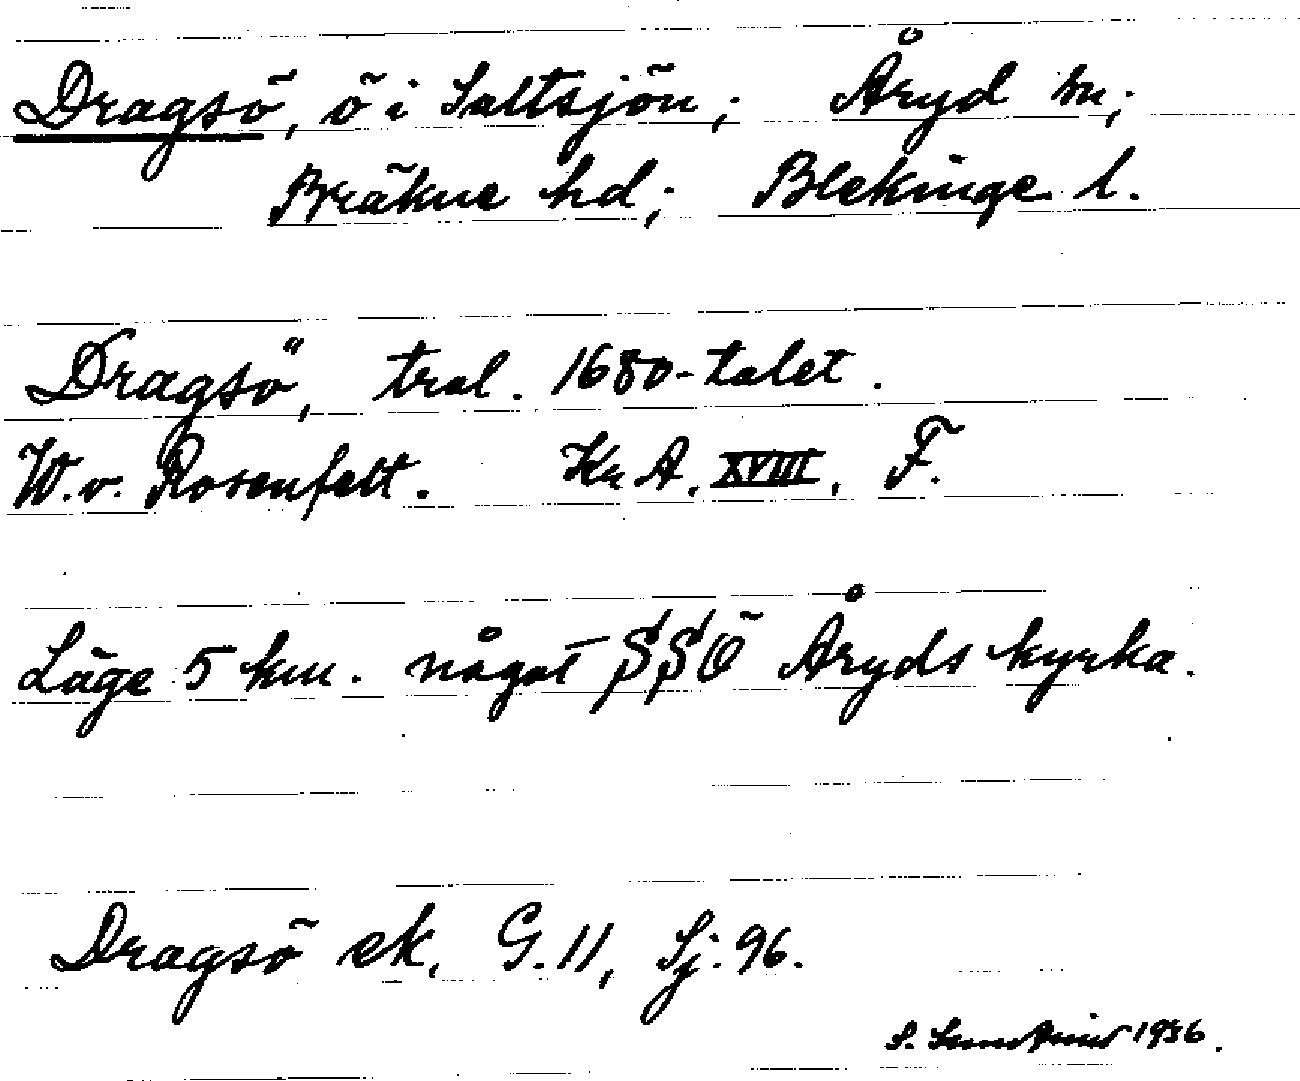 Dragsö, ö i Saltsjön; Åryd sn;
Bräkne hd; Blekinge l.
Dragsö, tral. 1680-talet.
W. v. Rosenfelt. Kr A. XVIII, F.
Läge 5 km. något SSÖ Åryds kyrka.
Dragsö ek. G. 11, Sj. 96.
S. 1936.